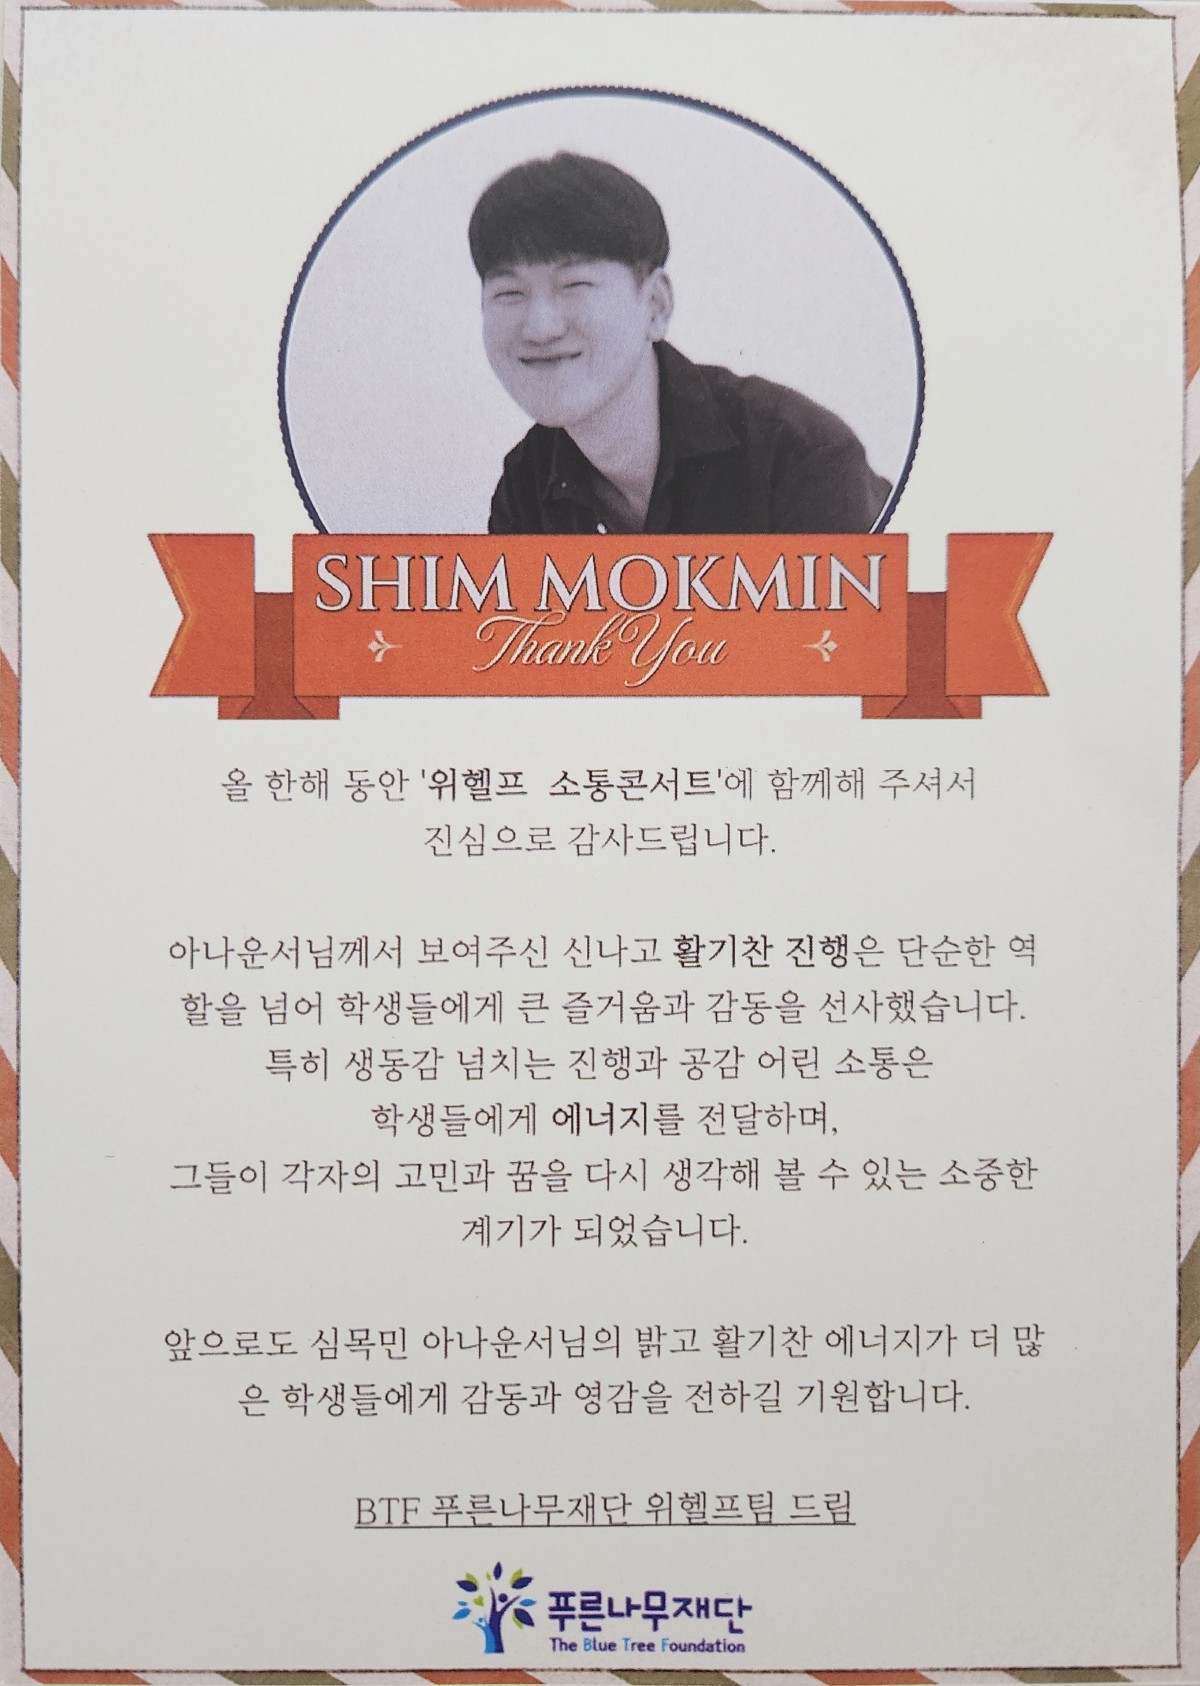 SHIM MOKMIN
Thank You
올 한해 동안 '위헬프 소통콘서트'에 함께해 주셔서
진심으로 감사드립니다.
아나운서님께서 보여주신 신나고 활기찬 진행은 단순한 역
할을 넘어 학생들에게 큰 즐거움과 감동을 선사했습니다.
특히 생동감 넘치는 진행과 공감 어린 소통은
학생들에게 에너지를 전달하며,
그들이 각자의 고민과 꿈을 다시 생각해 볼 수 있는 소중한
계기가 되었습니다.
앞으로도 심목민 아나운서님의 밝고 활기찬 에너지가 더 많
은 학생들에게 감동과 영감을 전하길 기원합니다.
BTF 푸른나무재단 위헬프팀 드림
푸른나무재단
The Blue Tree Foundation